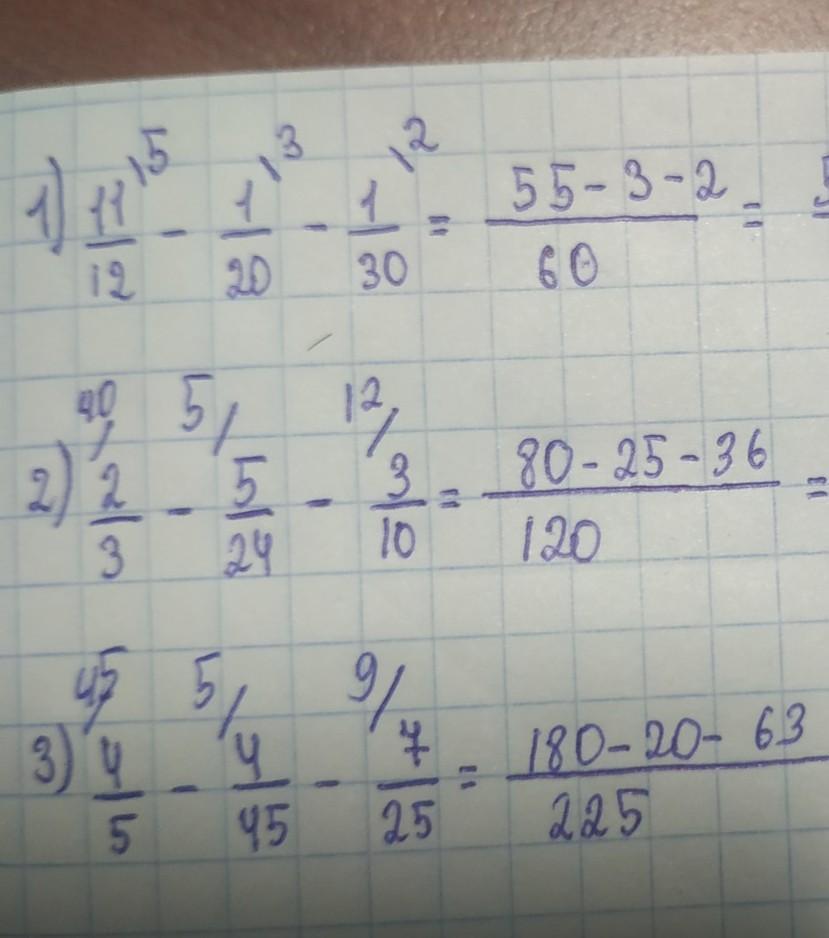 1) 11/12 \5 - 1/20 \3 - 1/30 \2 = 55-3-2/60 =
2) 40/ 2/3 - 5/ 5/24 - 12/ 3/10 = 80-25-36/120 =
3) 45/ 4/5 - 5/ 4/45 - 9/ 7/25 = 180-20-63/225